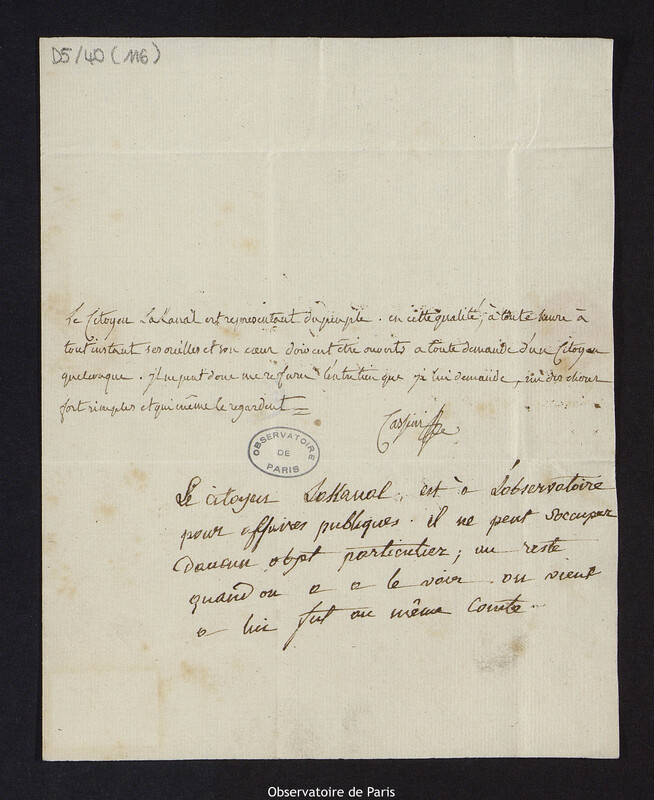 D5/40 (116)
Le Citoyen Lakanal est representant du peuple. en cette qualité, à toute heure à
tout instant ses oreilles et son cœur doivent être ouverts a toute demande d'un Citoyen
quelconque. il ne peut donc me refuser l'entretien que je lui demande, sur des choses
fort simples et qui même le regardent
Cassini
OBSERVATOIRE
DE
PARIS
Le citoyen Lakanal, est à L'observatoire
pour affaires publiques. il ne peut s'occuper
D'aucun objet particulier; au reste
quand on a a le voir on vient
a lui fut on même Comte.
Observatoire de Paris